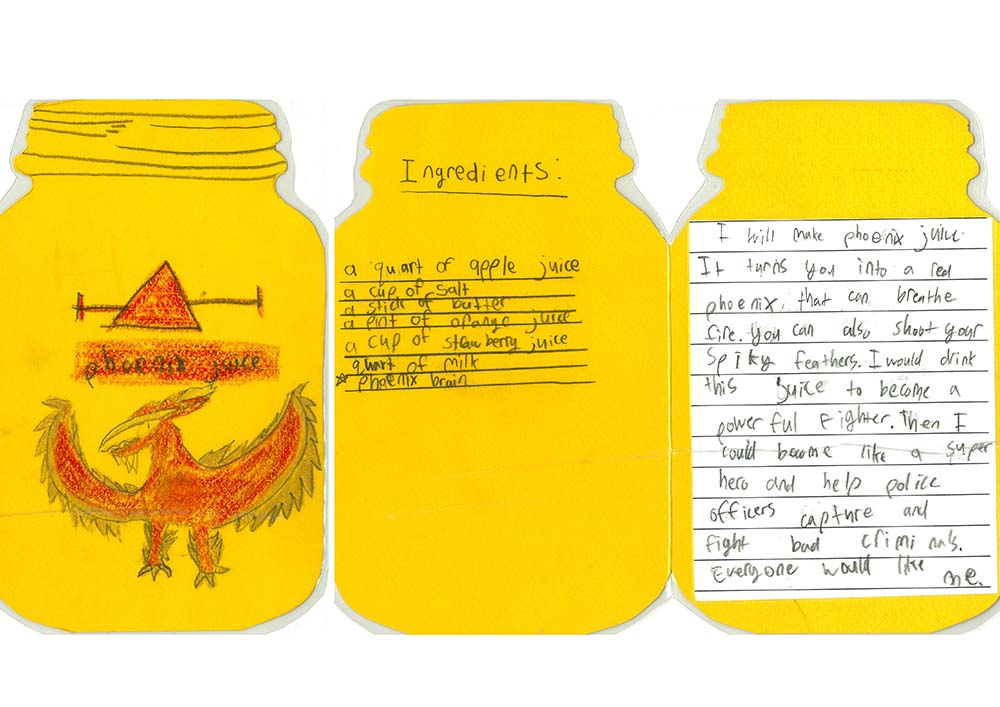 phoenix juice
Ingredients:
a quart of apple juice
a cup of salt
a stick of butter
a pint of orange juice
a cup of strawberry juice
quart of milk
☆ phoenix brain
I will make phoenix juice.
It turns you into a red
phoenix. that can breathe
fire. you can also shoot your
spiky feathers. I would drink
this juice to become a
powerful Fighter. Then I
could become like a super
hero and help police
officers capture and
fight bad criminals.
Everyone would like me.